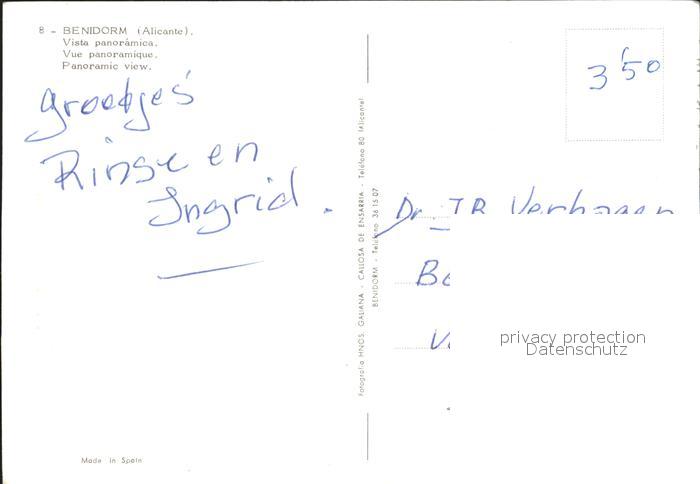 8 - BENIDORM (Alicante).
Vista panorámica.
Vue panoramique.
Panoramic view.
groetjes
Rinse en
Ingrid.
3'50
Fotografía HNOS. GALIANA - CALLOSA DE ENSARRIA - Teléfono 80 (Alicante)
BENIDORM - Teléfono 36 15 07
privacy protection
Datenschutz
Made in Spain